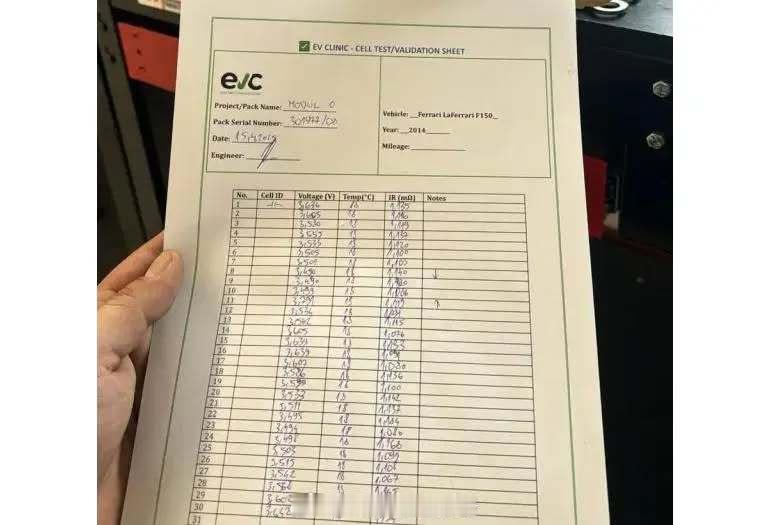 EV CLINIC - CELL TEST/VALIDATION SHEET
evc
Project/Pack Name: MODUL 0
Pack Serial Number:
Date:
Engineer:
Vehicle: __Ferrari LaFerrari F150__
Year: __2014______
Mileage: ____________
No. Cell ID Voltage (V) Temp(°C) IR (mΩ) Notes
1 3,634 18 1,125
2 3,605 18
3 3,530 18 1,119
4 3,555 18 1,132
5 3,535 18 1,120
6 3,505 18 1,100
7 3,501 18 1,107
8 3,490 18 1,140 ↓
9 3,490 18
10 18
11 3,791 18 1,119 ↑
12 3,534 18
13 3,542 18 1,115
14 3,605 18 1,076
15 3,639 18 1,153
16 3,639 18
17 3,607 18 1,080
18 3,586 18 1,136
19 3,590 18 1,100
20 3,553 18 1,142
21 3,511 18 1,137
22 3,495 18 1,104
23 3,494 18 1,080
24 3,496 18 1,068
25 3,503 18 1,099
26 3,515 18 1,108
27 3,542 18 1,067
28 18
29 3,602
30 3,652
31